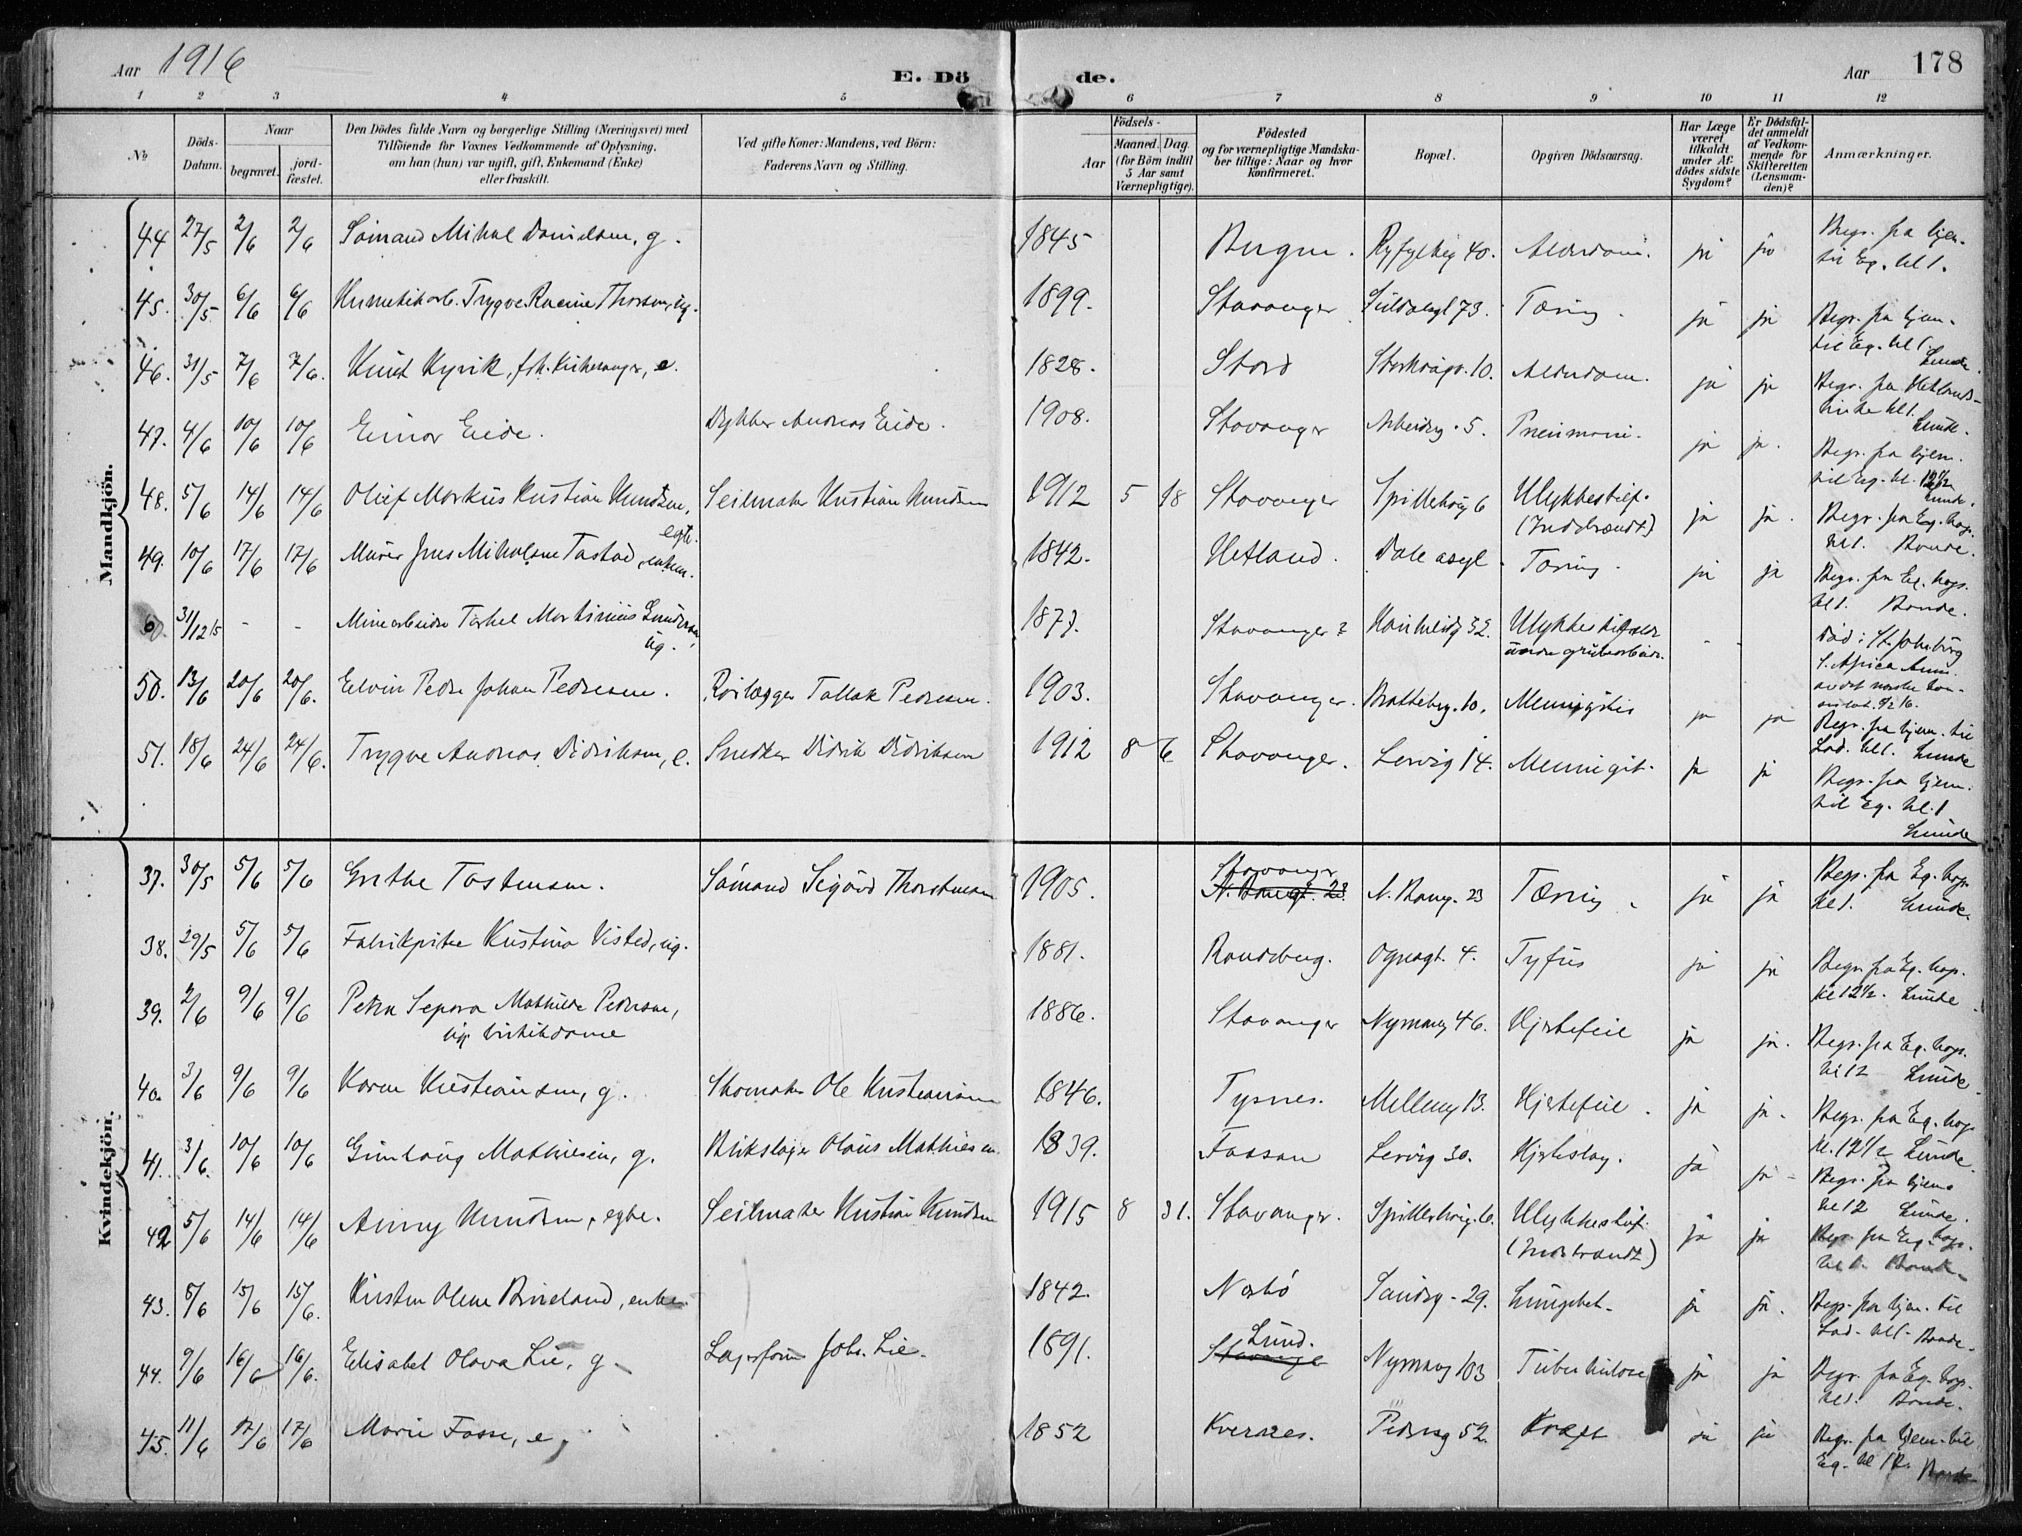 Aar 1916
E. Dö de.
Aar 178
1 2 3 4 5 6 7 8 9 10 11 12
No
Döds-Datum.
Naar
begravet.
jord-fæstet.
Den Dödes fulde Navn og borgerlige Stilling (Næringsvei) med
Tilföiende for Voxnes Vedkommende af Oplysning,
om han (hun) var ugift, gift, Enkemand (Enke)
eller fraskilt.
Ved gifte Koner: Mandens, ved Börn:
Faderens Navn og Stilling.
Födsels-
Aar
Maaned. Dag.
(for Börn indtil
5 Aar samt
Værnepligtige).
Födested
og for værnepligtige Mandska-
ber tillige: Naar og hvor
Konfirmeret.
Bopæl.
Opgiven Dödsaarsag.
Har Læge
været
tilkaldt
under Af-
dödes sidste
Sygdom?
Er Dödsfal-
det anmeldt
af Vedkom-
mende for
Skifteretten
(Lensman-
den)?
Anmærkninger.
Mandkjön.
44 27/5 2/6 2/6 Sömand Mikal Danielsen, g. 1845 Bergen. Ryfylkeg 40. Alderdom. ja ja Begr. fra hjem. til Eg. kl 1.
45. 30/5 6/6 6/6 Trygve Thorsen, ug. 1899. Stavanger Suldalsgt 73. Tæring. ja ja Begr. fra hjem. til Eg. kl 1. Lunde.
46. 31/5 7/6 7/6. Knut Kyvik, e. 1828. Stord 10. Alderdom. ja ja Begr. fra Hetlands-kirke kl 1. Lunde.
47. 4/6 10/6 10/6 Einar Eide. Dykker Andreas Eide. 1908. Stavanger Arbeiderg. 5. Pneumoni. ja ja. Begr. fra hjem. til Eg. kl. 12 1/2 Lunde.
48. 5/6 14/6 14/6 Olief Markus Kristian Knudsen, egte. Seilmaker Kristian Knudsen 1912 5 18 Stavanger Spilderhaug 6 Ulykkestilf. (Indebrændt) ja ja. Begr. fra Eg. kap. kl 1. Bonde.
49. 10/6 17/6 17/6 Murer Jens Mikalsen Tastad, enkem. 1842. Hetland. Dale asyl. Tæring. ja ja Begr. fra Eg. kap. kl 1. Bonde.
31/12 15 - - Minearbeider Torkel Martinius Gundersen, ug. 1877. Stavanger? 32. Ulykkestilfælde under grubearbeide. - - Död i S. Africa
50. 13/6 20/6 20/6. Edvin Peder Johan Pedersen. Rörlægger Tallak Pedersen. 1903. Stavanger. Brattebg. 10. Meningitis ja ja Begr. fra hjem. til Lad. kl 1. Lunde
51. 18/6 24/6 24/6. Trygve Andreas Didriksen, e. Snedker Didrik Didriksen 1912 8 6 Stavanger. Lervig 14. Meningit. ja ja Begr. fra hjem. til Eg. kl. 1 Lunde
Kvindekjön.
37. 30/5 5/6 5/6 Grethe Tostensen. Sömand Sigurd Thorstensen 1905. Stavanger N. Bangt. 23 N. Bang. 23 Tæring. ja ja Begr. fra Eg. kap. kl 1. Lunde.
38. 29/5 5/6 5/6 Fabrikpike Kristine Visted, ug. 1881. Randeberg. Ognagt. 4. Tyfus ja ja Begr. fra Eg. kap. kl 12 1/2. Lunde
39. 2/6 9/6 9/6 Petra Sepora Mathilde Pedersen, ug. butikdame 1886. Stavanger Nymansg 46. Hjertefeil ja ja. Begr. fra Eg. kap. kl 12 Lunde.
40. 3/6 9/6 9/6 Karen Kristiansen, g. Skomaker Ole Kristiansen 1846. Tysnes. Mellemg 13. Hjertefeil. ja ja. Begr. fra Eg. kap. kl. 12 1/2 Lunde.
41. 3/6. 10/6 10/6 Gunlaug Mathiesen, g. Blikslager Olaus Mathiesen. 1839. Fossan Lervig 30. Hjerteslag. ja ja Begr. fra hjem. kl 12 Lunde.
42 5/6 14/6 14/6 Anny Knudsen, egte. Seilmaker Kristian Knudsen 1915 8 31. Stavanger. Spilderhaug. 6. Ulykkestilf. (Indebrændt) ja ja Begr. fra Eg. kap. kl 1. Bonde.
43. 5/6 15/6 15/6. Kirsten Olene Brueland, enke. 1842. Nærbö Sandsg. 29. Lungebet. ja ja. Begr. fra hjem. til Lad. kl 1. Bonde.
44. 9/6 16/6 16/6. Elisabet Olava Lie, g. Lagerform Johs. Lie. 1891. Lund. Stavanger Nymansg 103 Tuberkulose ja ja Begr. fra Eg. kap. kl 1. Bonde.
45. 11/6 17/6 17/6 Marie Fosse, e. 1852 Kvernes. Pedersg 52. Kræft ja ja Begr. fra hjem. til Eg. kl 12. Bonde